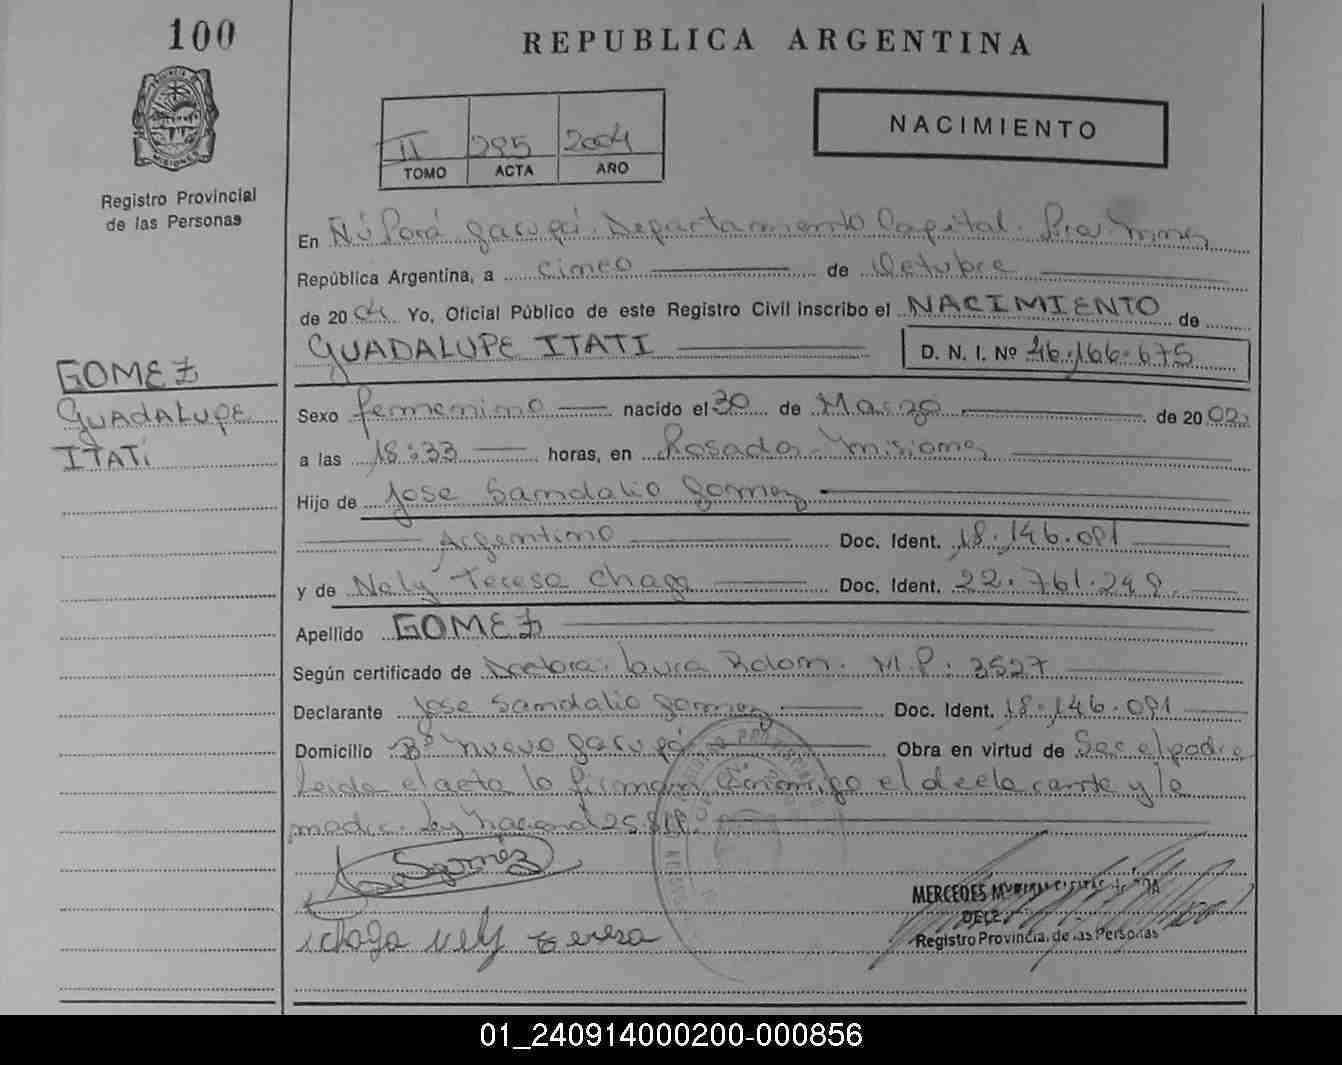 100
REPUBLICA ARGENTINA
PROVINCIA DE
MISIONES
Registro Provincial
de las Personas
II 295 2004
TOMO ACTA AÑO
NACIMIENTO
En Ñú Porá Garupá. Departamento Capital.
República Argentina, a cinco de Octubre
de 2004 Yo, Oficial Público de este Registro Civil inscribo el NACIMIENTO de
GUADALUPE ITATI D. N. I. Nº 46.166.675
GOMEZ
GUADALUPE
ITATÍ
Sexo femenino nacido el 30 de Marzo de 2002
a las 18:33 horas, en Posadas. Misiones
Hijo de Jose Sandalio Gomez
Argentino Doc. Ident. 18.146.091
y de Nely Teresa Chaga Doc. Ident. 22.761.249.
Apellido GOMEZ
Según certificado de Doctora: Laura Rolon. M.P: 3527
Declarante Jose Sandalio Gomez Doc. Ident. 18.146.091
Domicilio Bº Nuevo Garupá Obra en virtud de Ser el padre
Leida el acta la firman conmigo el declarante y la
madre. Ley Nacional 25.818.
Jose S gomez
chaga nely teresa
MERCEDES
Registro Provincial de las Personas
01_240914000200-000856